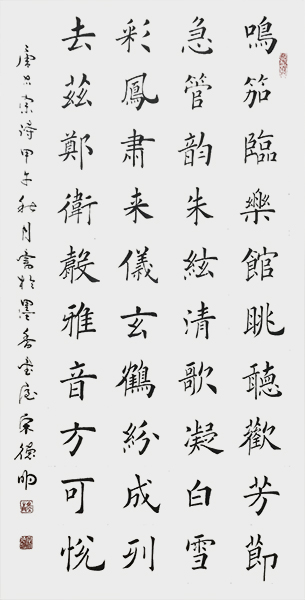 鳴笳臨樂館眺聽歡芳節
急管韵朱絃清歌凝白雪
彩鳳肅来儀玄鶴紛成列
去茲鄭衛聲雅音方可悅
甲午秋月書於墨香堂